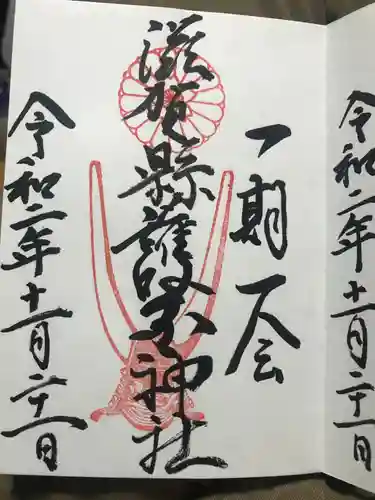 令和二年十一月二十一日
一期一会
滋賀縣護國神社
令和二年十一月二十一日